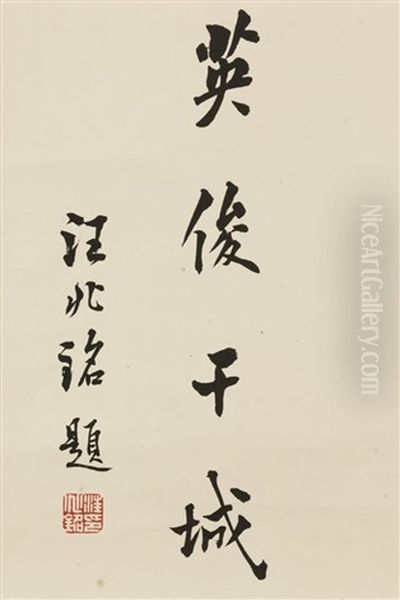 英俊干城
汪兆銘題
汪兆銘印
NiceArtGallery.com